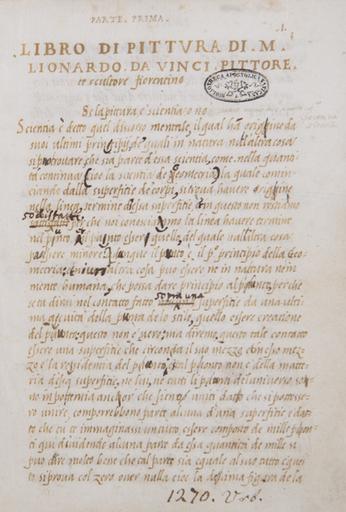 PARTE PRIMA.
1.
LIBRO DI PITTVRA DI M.
LIONARDO DA VINCI PITTORE.
et scultore fiorentino
Se la pittura è scientia o no
Scientia è detto quel discorso mentale, il qual ha origine da
suoi ultimi principij de quali in natura null'altra cosa
si po trovare che sia parte d'essa scientia, come nella quanti
ta continua cioe la scientia de Geometria, la quale comin
ciando dalla superfitie de corpi, si trova havere origine
nella linea, termine d'essa superfitie, et in questo non restiamo
sodisfatti
perche noi conosciamo la linea havere termine
nel punto, et il punto esser quello, del quale null'altra cosa
po essere minore. dunque il punto, è il p.º principio della Geo
metria, et niuna altra cosa puo essere ne in natura ne in
mente humana, che possa dare principio al punto, perche
se tu dirai nel contatto fatto sopra una superfitie da una ulti
ma acuità della punta de lo stile, quello essere creatione
del punto, questo non è vero, ma diremo, questo tale contatto
essere una superfitie che circonda il suo mezzo, et in esso mez
zo è la residentia del punto, et tal punto non è della mate
ria d'essa superfitie, ne lui, ne tutti li punti de l'universo so
no in potentia anchor che sieno uniti dato che si potesse
ro unire, comporrebbono parte alcuna d'una superfitie, e dato
che tu te immaginassi un tutto essere composto da mille pun
ti qui dividendo alcuna parte da essa quantità de mille si
puo dire molto bene che tal parte sia equale al suo tutto, e que
sto si prova col zero over nulla cioe la decima figura de la
1270. Urb.